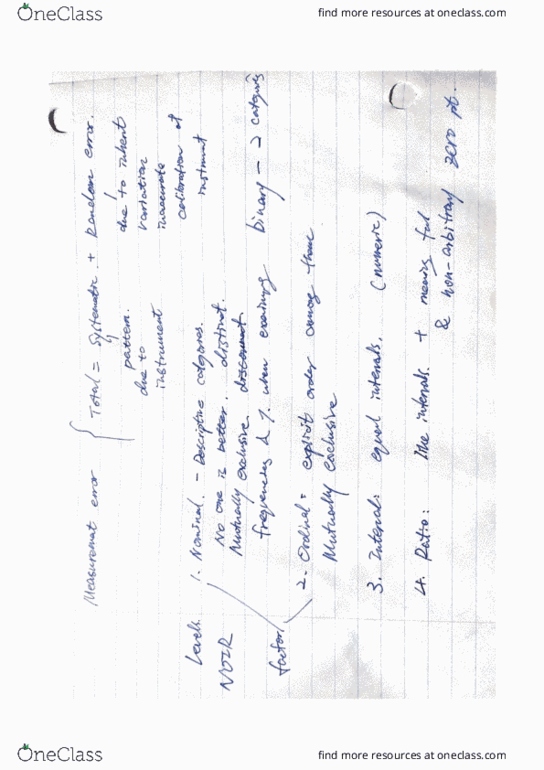 OneClass
find more resources at oneclass.com
Measuremat error { Total = systematic + Random error.
pattern.
due to
instrument
due to inherent
variation
inaccurate
calibration of
instrument
Levels 1. Nominal. - Descriptive categories.
NOIR No one is better. distinct.
Mutually exclusive.
frequencies & % when examining binary - 2 categories
factor 2. Ordinal = explicit order among them.
Mutually exclusive
3. Intervals equal intervals. (numeric)
4. Ratio: like intervals + meaningful
& non-arbitrary zero pt.
OneClass
find more resources at oneclass.com